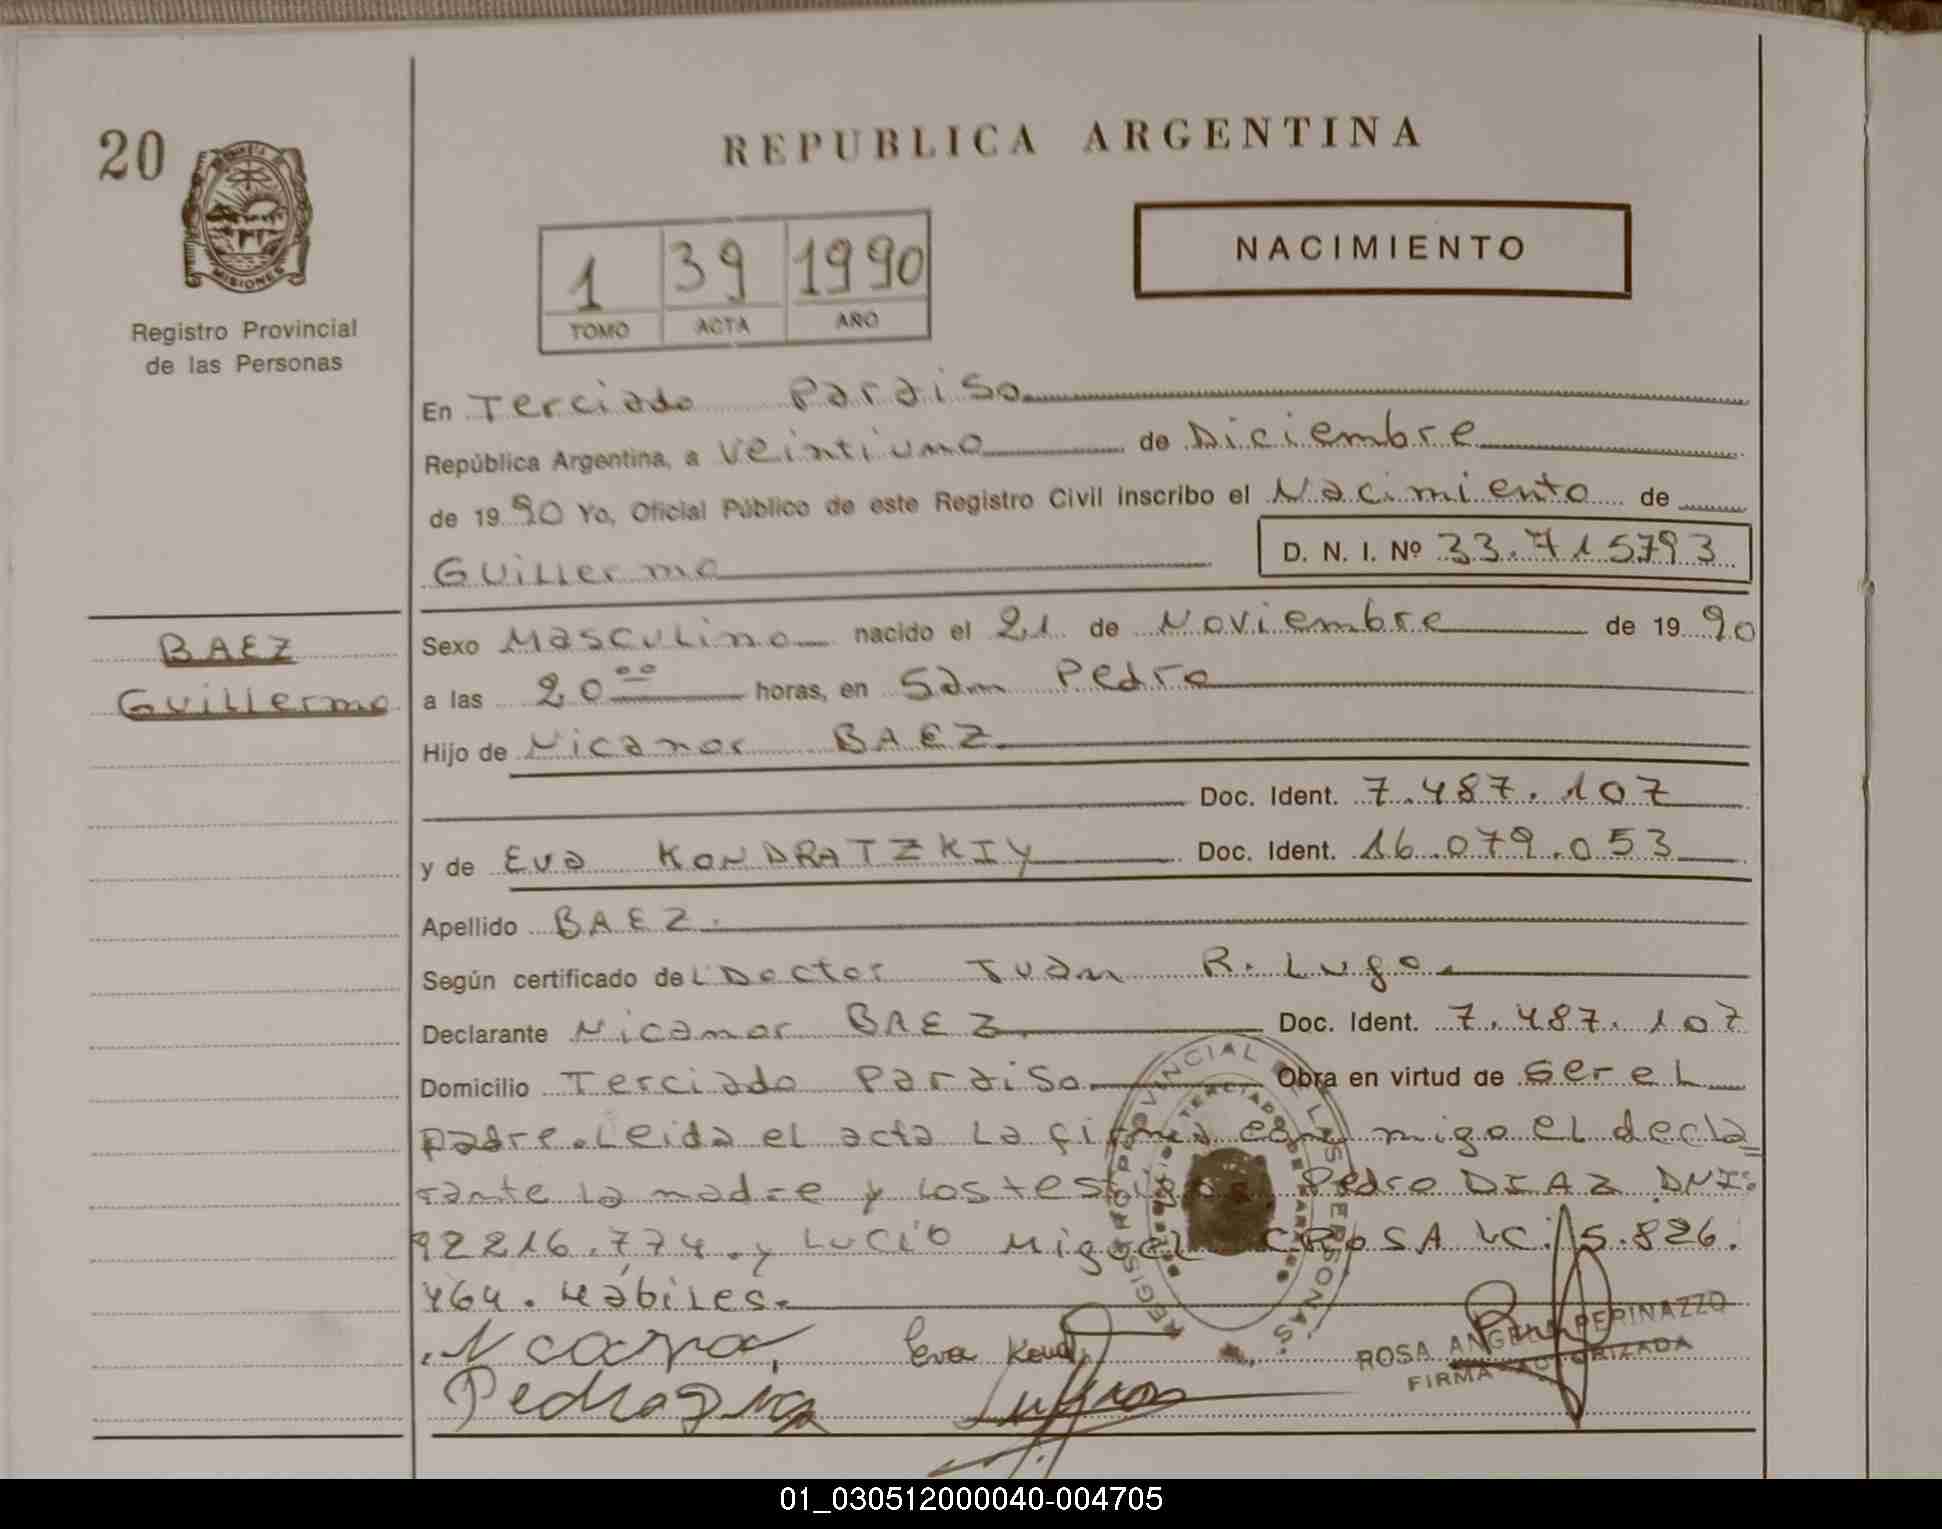 20
MISIONES
Registro Provincial
de las Personas
REPUBLICA ARGENTINA
1 39 1990
TOMO ACTA AÑO
NACIMIENTO
En Terciado Paraiso
República Argentina, a veintiuno de Diciembre
de 1990 Yo, Oficial Público de este Registro Civil inscribo el Nacimiento de
Guillermo D. N. I. Nº 33.715793
BAEZ
Guillermo
Sexo Masculino nacido el 21 de Noviembre de 1990
a las 20 00 horas, en San Pedro
Hijo de Nicanor BAEZ
Doc. Ident. 7.487.107
y de Eva KONDRATZKIY Doc. Ident. 16.079.053
Apellido BAEZ.
Según certificado del Doctor Juan R. Lugo.
Declarante Nicanor BAEZ Doc. Ident. 7.487.107
Domicilio Terciado Paraiso Obra en virtud de ser el
padre. Leida el acta la firman con migo el decla=
rante la madre y los testigos Pedro DIAZ DNI:
92216.774. y Lucio Miguel CROSA LC: 5.826.
464. Hábiles.
REGISTRO PROVINCIAL DE LAS PERSONAS
Eva Kond
ROSA ANGELA PERINAZZO
FIRMA AUTORIZADA
01_030512000040-004705